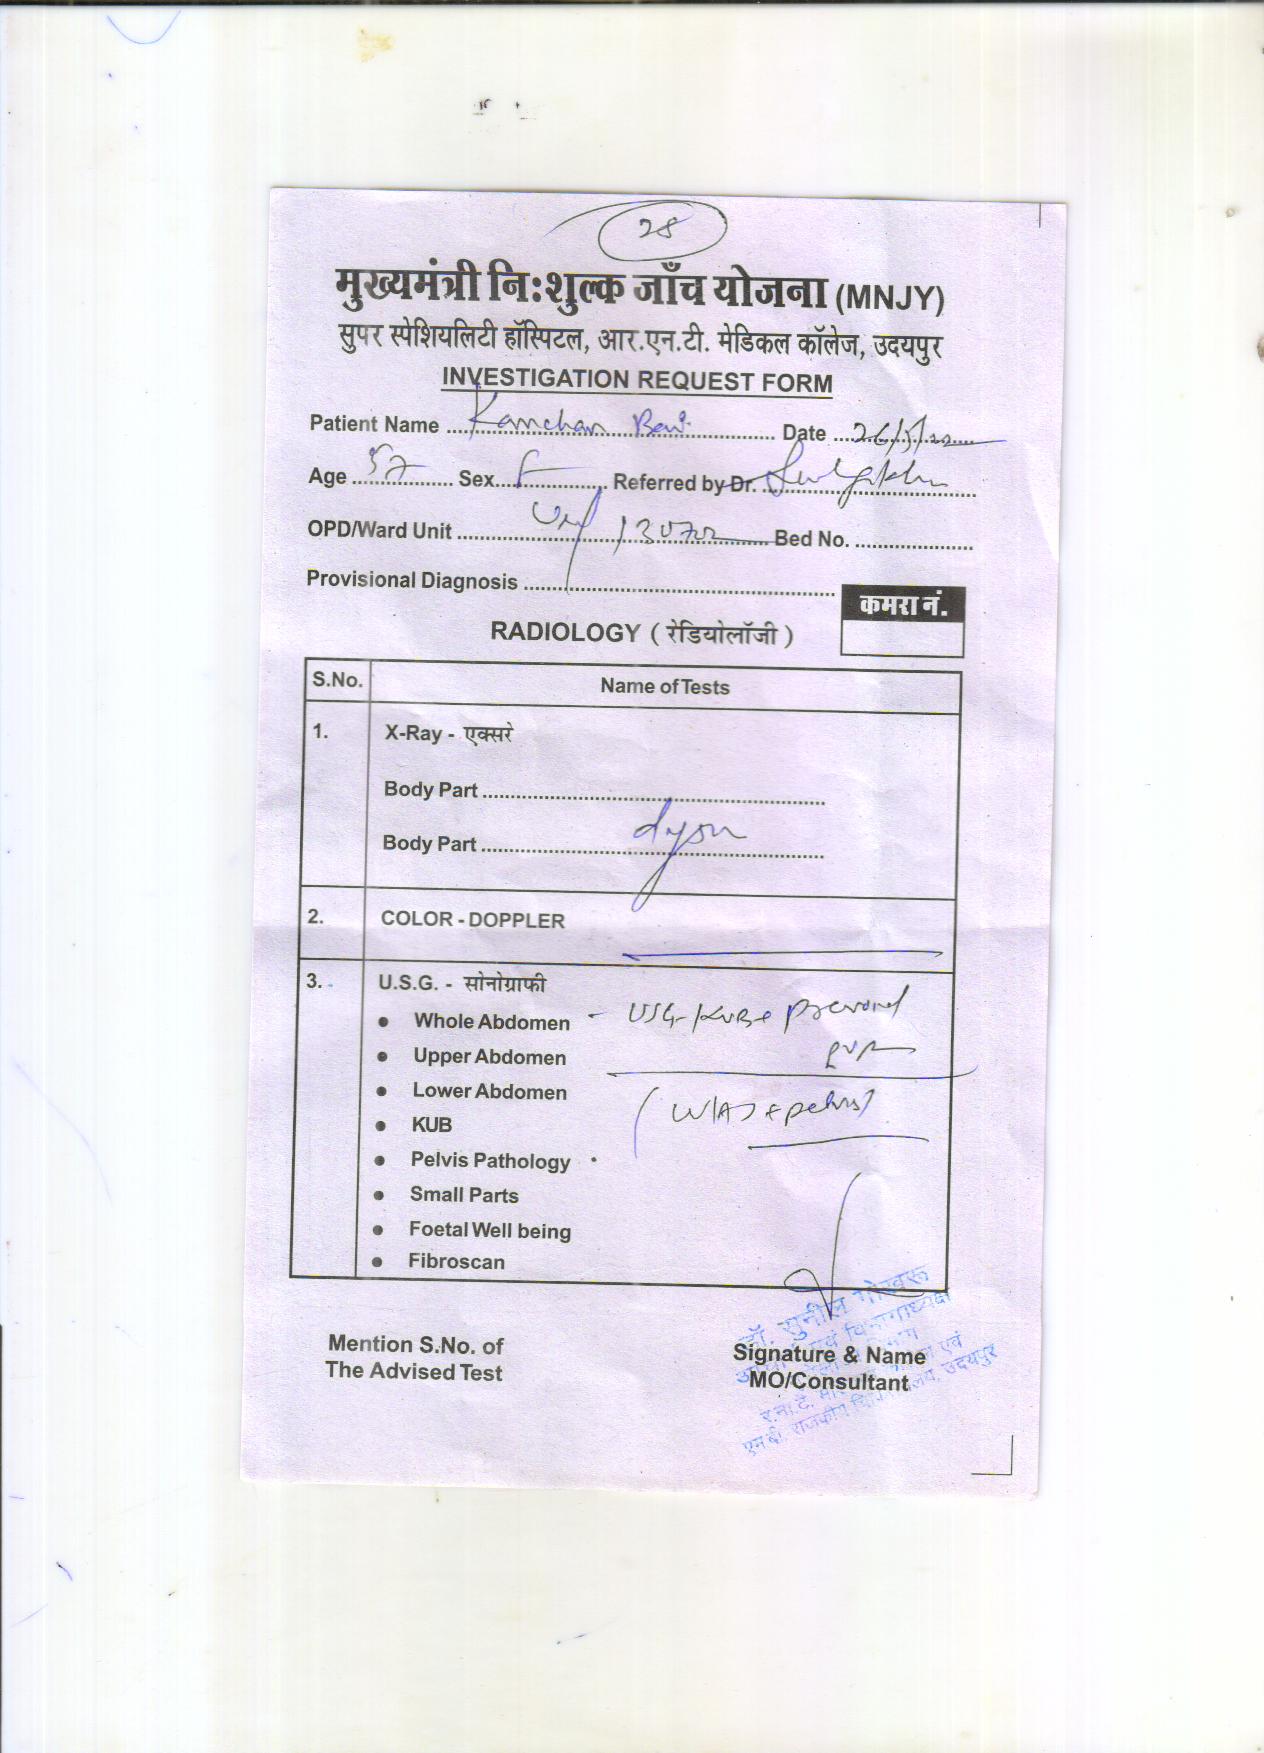 28
मुख्यमंत्री निःशुल्क जाँच योजना (MNJY)
सुपर स्पेशियलिटी हॉस्पिटल, आर.एन.टी. मेडिकल कॉलेज, उदयपुर
INVESTIGATION REQUEST FORM
Patient Name Kanchan Date
Age 57 Sex F Referred by Dr.
OPD/Ward Unit Bed No.
Provisional Diagnosis
कमरा नं.
RADIOLOGY ( रेडियोलॉजी )
S.No. Name of Tests
1. X-Ray - एक्सरे
Body Part
Body Part
2. COLOR - DOPPLER
3. U.S.G. - सोनोग्राफी
• Whole Abdomen - USG-KUB+
• Upper Abdomen PVR
• Lower Abdomen
• KUB (W/A) + pelvis)
• Pelvis Pathology
• Small Parts
• Foetal Well being
• Fibroscan
डॉ. सुनील गोखरू
Mention S.No. of
The Advised Test
एवं विभागाध्यक्ष
Signature & Name
MO/Consultant
एवं
उदयपुर
राजकीय